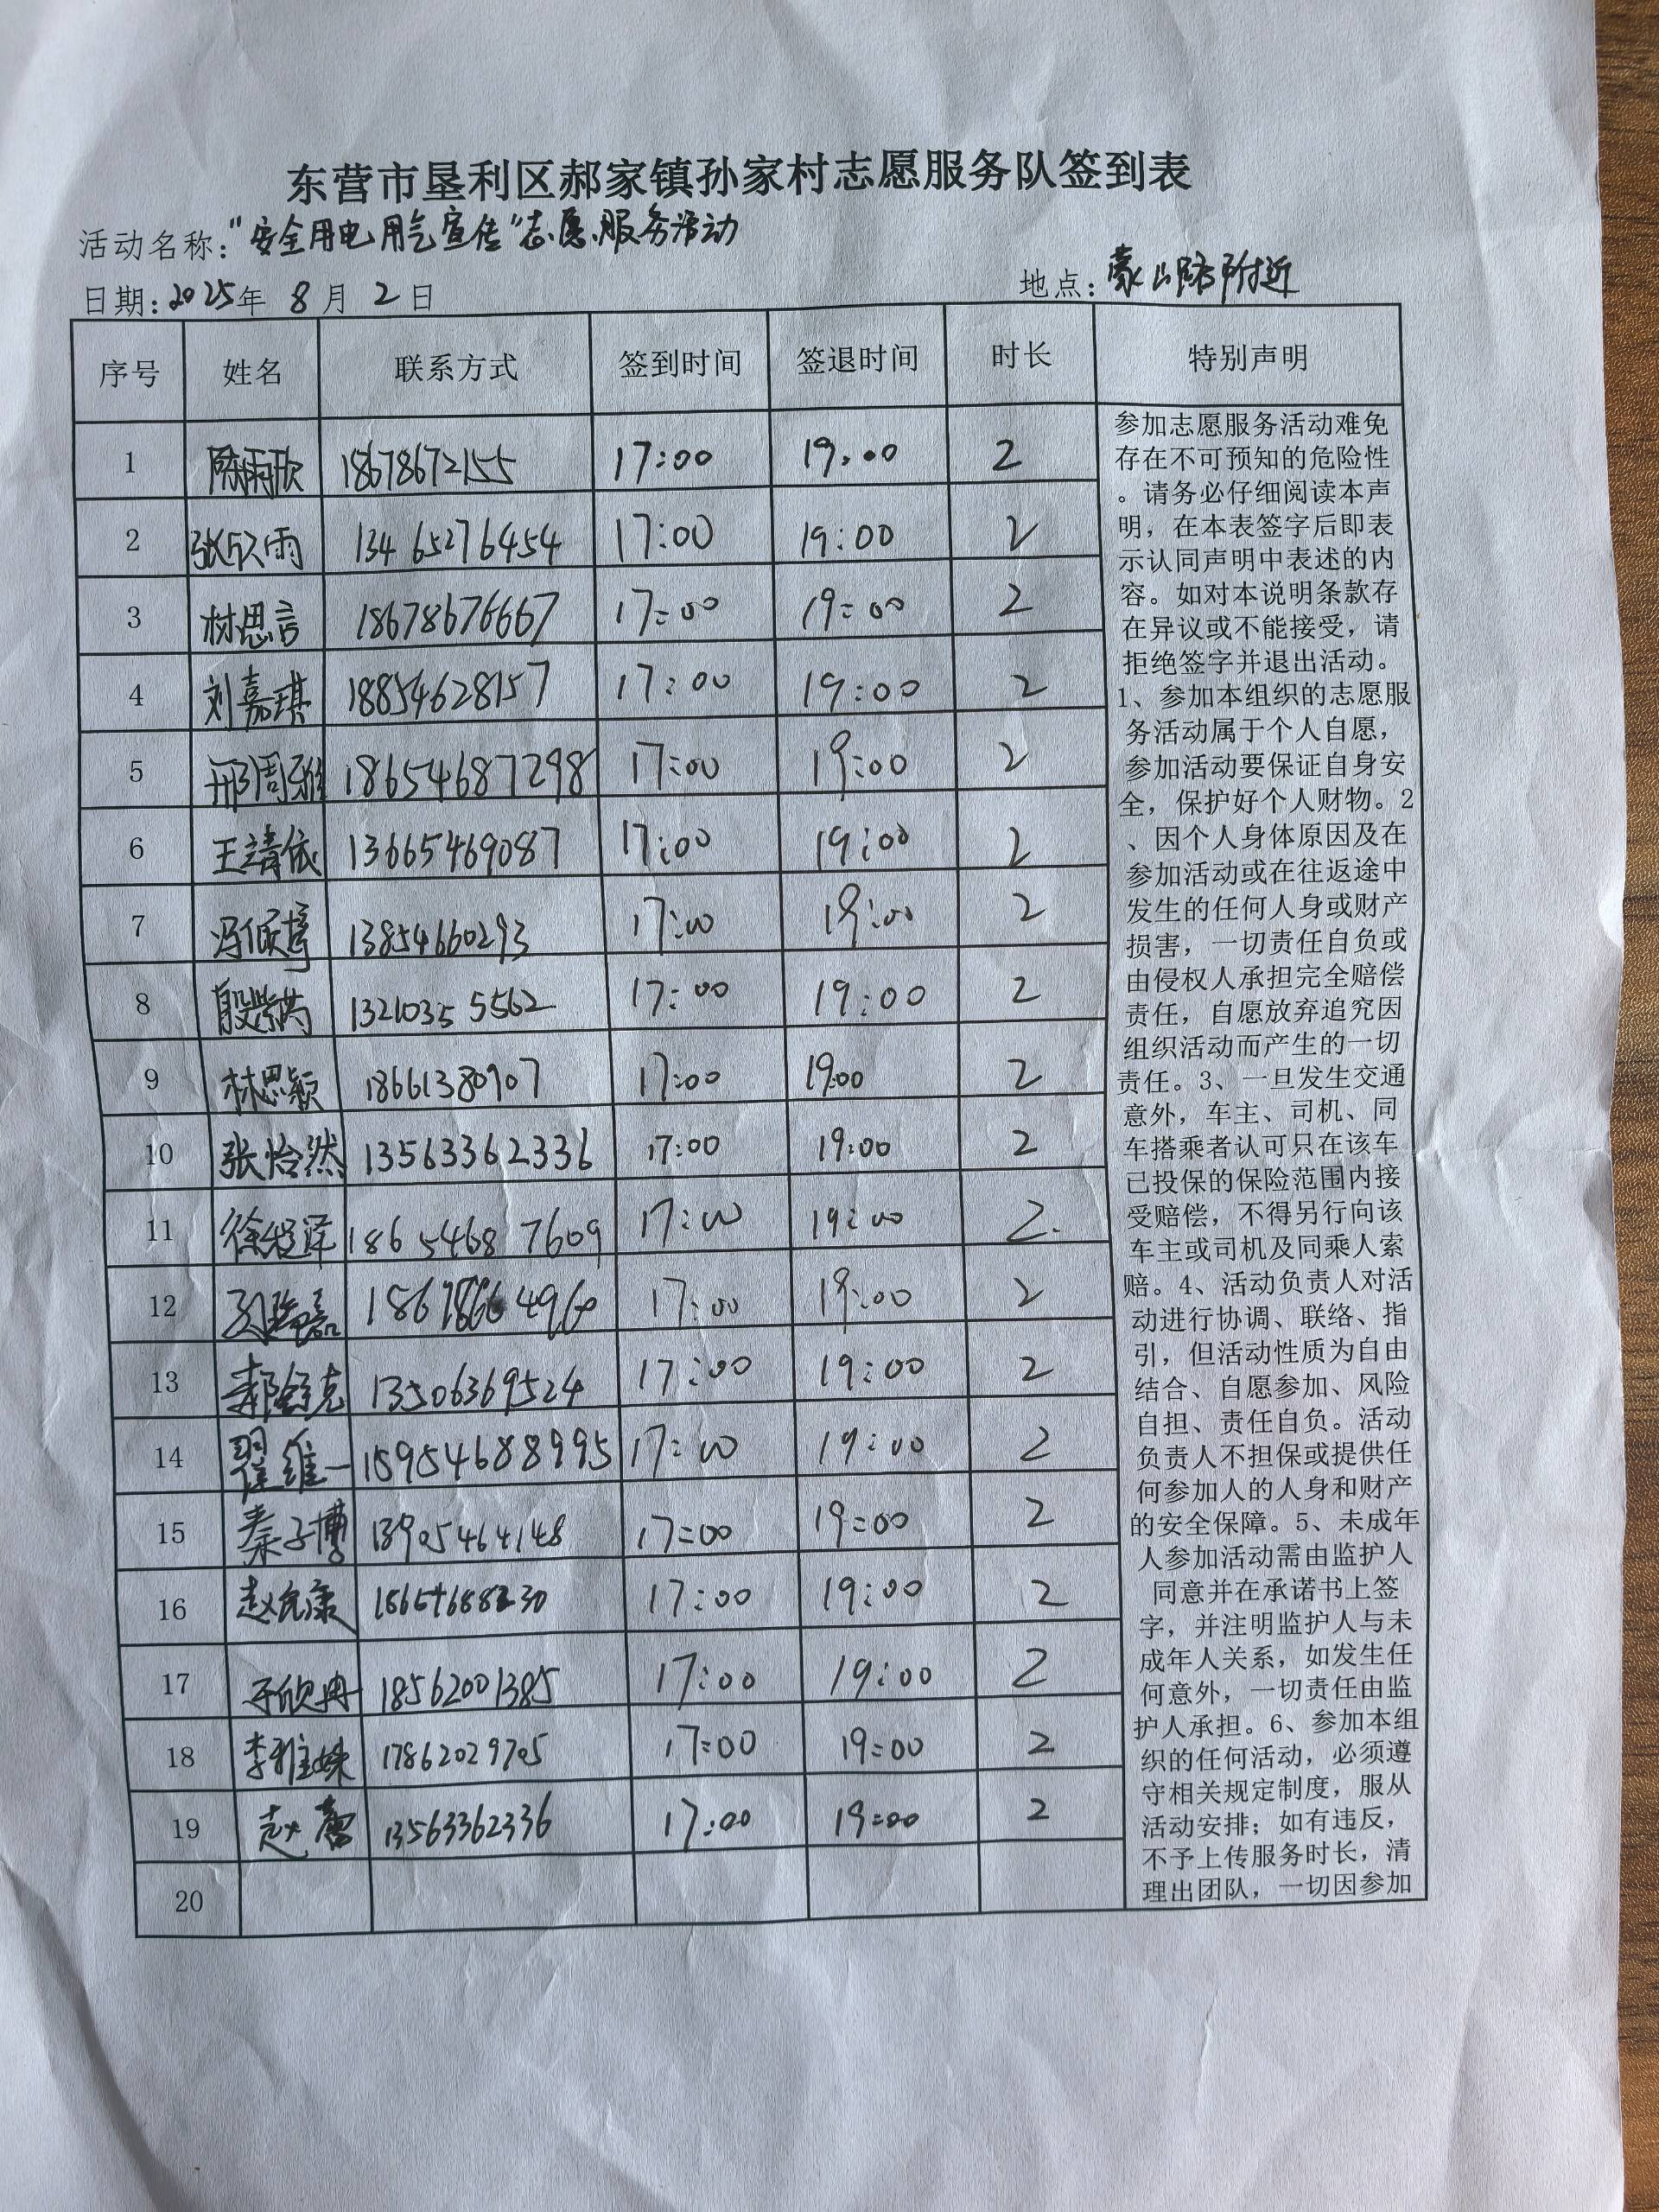 东营市垦利区郝家镇孙家村志愿服务队签到表
活动名称："安全用电用气宣传"志愿服务活动
日期：2025年 8月 2日 地点：蒙山路附近
序号 姓名 联系方式 签到时间 签退时间 时长 特别声明
1 陈雨欣 18678672155 17:00 19:00 2
2 张欣雨 13465276454 17:00 19:00 2
3 林思言 18678676667 17:00 19:00 2
4 刘嘉琪 18854628157 17:00 19:00 2
5 邢周雅 18654687298 17:00 19:00 2
6 王靖依 13665469087 17:00 19:00 2
7 冯 13854660293 17:00 19:00 2
8 殷紫 13210355562 17:00 19:00 2
9 林思颖 18661380907 17:00 19:00 2
10 张怡然 13563362336 17:00 19:00 2
11 徐 18654687609 17:00 19:00 2
12 17:00 19:00 2
13 13506369524 17:00 19:00 2
14 翟维一 15954688995 17:00 19:00 2
15 秦子博 13905464148 17:00 19:00 2
16 赵 18654688230 17:00 19:00 2
17 于欣冉 18562001385 17:00 19:00 2
18 李雅姝 17862029705 17:00 19:00 2
19 赵蕾 13563362336 17:00 19:00 2
20
参加志愿服务活动难免
存在不可预知的危险性
。请务必仔细阅读本声
明，在本表签字后即表
示认同声明中表述的内
容。如对本说明条款存
在异议或不能接受，请
拒绝签字并退出活动。
1、参加本组织的志愿服
务活动属于个人自愿，
参加活动要保证自身安
全，保护好个人财物。2
、因个人身体原因及在
参加活动或在往返途中
发生的任何人身或财产
损害，一切责任自负或
由侵权人承担完全赔偿
责任，自愿放弃追究因
组织活动而产生的一切
责任。3、一旦发生交通
意外，车主、司机、同
车搭乘者认可只在该车
已投保的保险范围内接
受赔偿，不得另行向该
车主或司机及同乘人索
赔。4、活动负责人对活
动进行协调、联络、指
引，但活动性质为自由
结合、自愿参加、风险
自担、责任自负。活动
负责人不担保或提供任
何参加人的人身和财产
的安全保障。5、未成年
人参加活动需由监护人
同意并在承诺书上签
字，并注明监护人与未
成年人关系，如发生任
何意外，一切责任由监
护人承担。6、参加本组
织的任何活动，必须遵
守相关规定制度，服从
活动安排；如有违反，
不予上传服务时长，清
理出团队，一切因参加